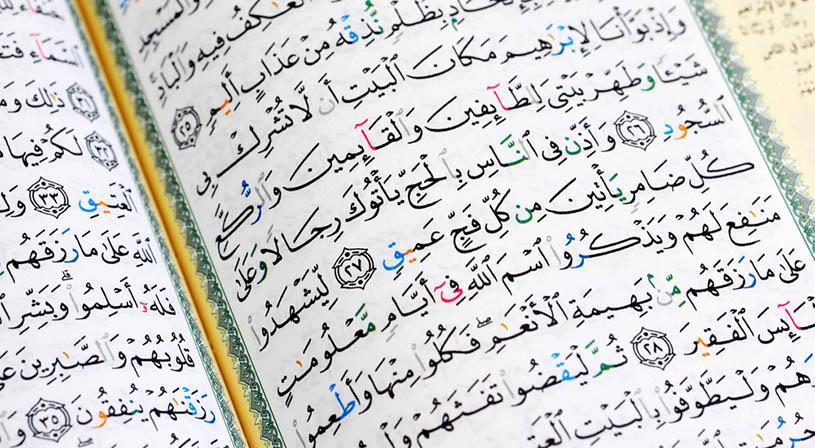 وَٱلْمَسْجِدِ
ٱلْعَٰكِفُ فِيهِ وَٱلْبَادِ
بِظُلْمٍ نُّذِقْهُ مِنْ عَذَابٍ أَلِيمٍ ٢٥
وَإِذْ بَوَّأْنَا لِإِبْرَٰهِيمَ مَكَانَ ٱلْبَيْتِ أَن لَّا تُشْرِكْ بِى
شَيْـًٔا وَطَهِّرْ بَيْتِىَ لِلطَّآئِفِينَ وَٱلْقَآئِمِينَ وَٱلرُّكَّعِ
ٱلسُّجُودِ ٢٦ وَأَذِّن فِى ٱلنَّاسِ بِٱلْحَجِّ يَأْتُوكَ رِجَالًا وَعَلَىٰ
كُلِّ ضَامِرٍ يَأْتِينَ مِن كُلِّ فَجٍّ عَمِيقٍ ٢٧ لِّيَشْهَدُوا۟
مَنَٰفِعَ لَهُمْ وَيَذْكُرُوا۟ ٱسْمَ ٱللَّهِ فِىٓ أَيَّامٍ مَّعْلُومَٰتٍ
عَلَىٰ مَا رَزَقَهُم مِّنۢ بَهِيمَةِ ٱلْأَنْعَٰمِ ۖ فَكُلُوا۟ مِنْهَا وَأَطْعِمُوا۟
ٱلْبَآئِسَ ٱلْفَقِيرَ ٢٨ ثُمَّ لْيَقْضُوا۟ تَفَثَهُمْ
وَلْيَطَّوَّفُوا۟ بِٱلْبَيْتِ
ٱلسَّمَآءِ
ذَٰلِكَ
لَكُمْ فِيهَا
ٱلْعَتِيقِ ٣٣
ٱللَّهِ عَلَىٰ مَا رَزَقَهُم
فَلَهُۥٓ أَسْلِمُوا۟ ۗ وَبَشِّرِ
قُلُوبُهُمْ وَٱلصَّٰبِرِينَ
رَزَقْنَٰهُمْ يُنفِقُونَ ٣٥